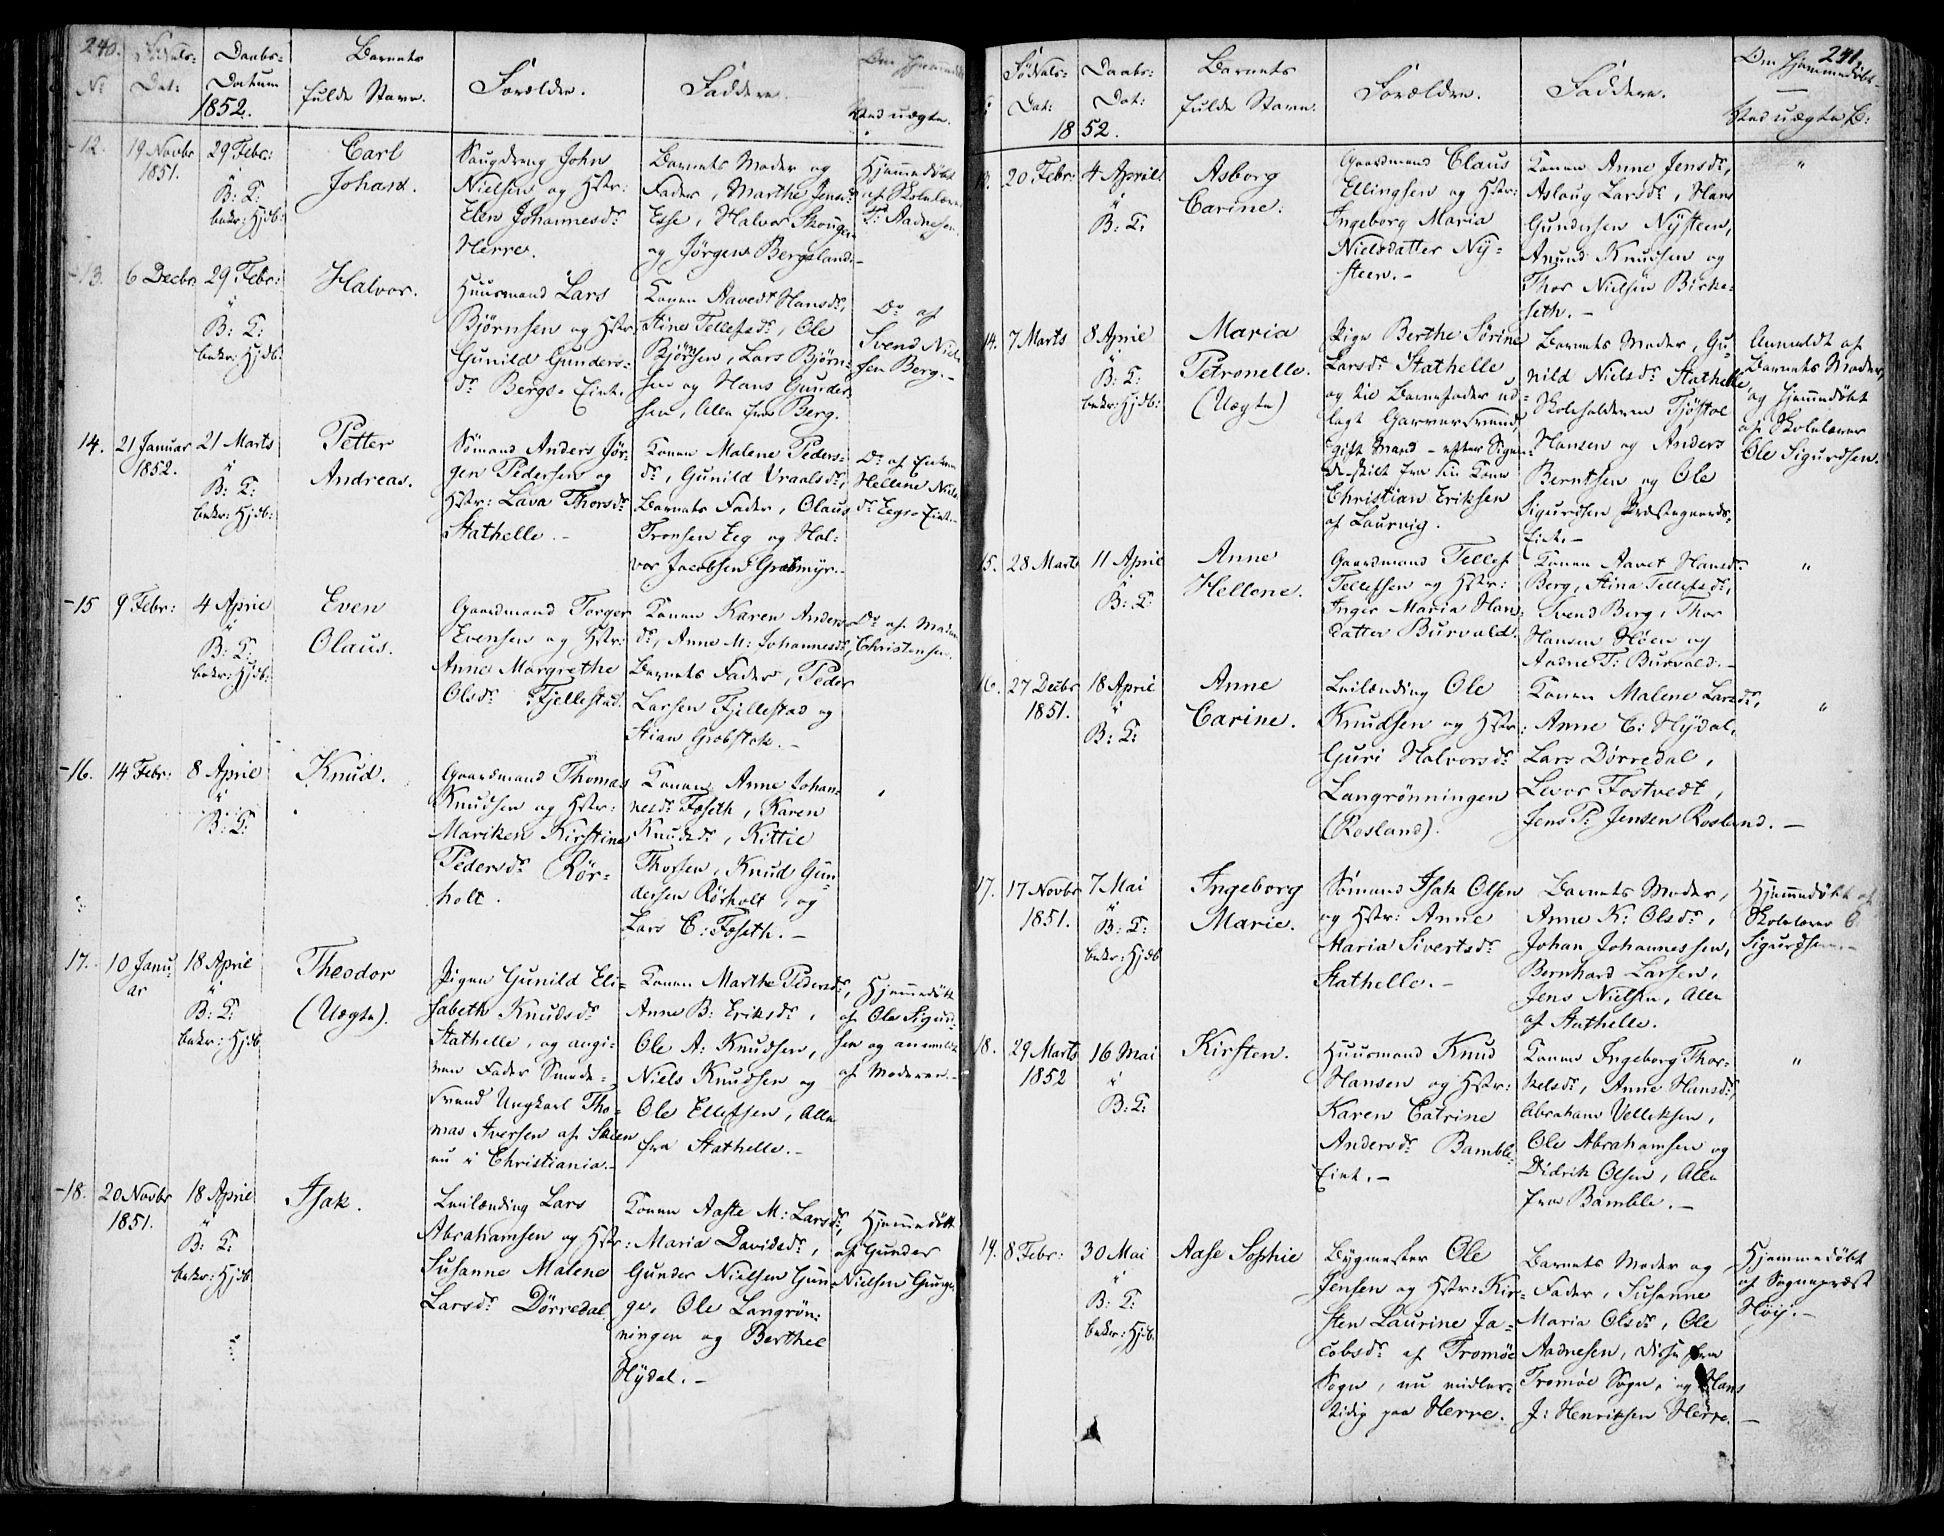 240.
No
Fødsels-
Dat:
Daabs-
Datum
1852.
Barnets
fulde Navn.
Forældre.
Faddere.
Om hjemmedøbt
Sted uægte.
12.
19 Novbr
1851.
29 Febr:
i
B: K:
bekr: Hjdb:
Carl
Johan.
Saugdreng John
Nielsen og Hstr:
Elen Johannesdr
Herre.
Barnets Moder og
Fader, Marthe Jensdr
Esse, Halvor Skougen
og Jørgen Bergsland.-
Hjemmedøbt
af Skolelærer
T: Aadnesen.
13.
6 Decbr
29 Febr:
i
B: K:
bekr: Hjdb:
Halvor.
Huusmand Lars
Bjørnsen og Hstr:
Gunild Gunders-
dr Bergs-Eiet.
Konen Aavedt Hansdr,
Stine Tellefsdr, Ole
Bjørnsen, Lars Bjørn-
sen og Hans Gunder-
sen, Alle fra Berg.
Do af
Svend Niel-
sen Berg.-
14.
21 Januar
1852.
21 Marts
i
B: K:
bekr: Hjdb:
Petter
Andreas.
Sømand Anders Jør-
gen Pedersen og
Hstr: Lava Thorsdr
Stathelle.-
Konen Malene Peders-
dr, Gunild Vraalsdr,
Barnets Fader, Olaus
Tronsen Eeg og Hal-
vor Jacobsen Grobmyr.-
Do af Enken
Hellene Niels-
dr Eegs-Eiet.-
15
9 Febr:
4 April
i
B: K:
bekr: Hjdb:
Even
Olaus.
Gaardmand Torger
Evensen og Hstr:
Anne Margrethe
Olsdr Fjellestad.
Konen Karen Anders-
dr, Anne M: Johannesdr,
Barnets Fader, Peder
Larsen Fjellestad og
Stian Grobstok.-
Do af Madame
Christensen.
16.
14 Febr:
8 April
i
B: K:
Knud.
Gaardmand Thomas
Knudsen og Hstr:
Mariken Kirstine
Pedersdr Rør-
holt.
Konen Anne Johan-
nesdr Foseth, Karen
Knudsdr, Kittil
Thorsen, Knud Gun-
dersen Rørholt, og
Lars C: Foseth.-
"
17.
10 Janu
ar
18 April
i
B: K:
bekr: Hjdb
Theodor
(Uægte).
Pigen Gunild Eli-
sabeth Knudsdr
Stathelle, og angi-
ven Fader Smede-
svend Ungkarl Tho-
mas Iversen af Skien
nu i Christiania.-
Konen Marthe Pedersdr,
Anne B: Eriksdr,
Ole A: Knudsen,
Niels Knudsen og
Ole Ellefsen, Alle
fra Stathelle.-
Hjemmedøbt
af Ole Sigurd-
sen og anmeldt
af Moderen.-
18.
20 Novbr
1851.
18 April
i
B: K:
bekr: Hjdb
Isak.
Leilænding Lars
Abrahamsen og Hstr:
Susanne Malene
Larsdr Dørredal
Konen Aaste M: Larsdr,
Maria Davidsdr,
Gunder Nielsen Gun-
ge, Ole Langrøn-
ningen og Berthel
Hydal.-
Hjemmedøbt
af Gunder
Nielsen Gunge
241.
Fødsels-
Dat:
Daabs-
Dat:
1852.
Barnets
fulde Navn.
Forældre.
Faddere.
Om hjemmedøbt-
Sted uægte B:
13.
20 Febr:
4 April
i
B: K:
Asborg
Carine:
Gaardmand Claus
Ellingsen og Hstr:
Ingeborg Maria
Nielsdatter Ny-
steen.-
Konen Anne Jensdr,
Aslaug Larsdr, Hans
Gundersen Nysteen,
Anund Knudsen og
Thor Nielsen Birke-
seth.-
"
14.
7 Marts
8 April
i
B: K:
bekr: Hjdb:
Maria
Petronelle.
(Uægte)
Pige Berthe Sørine
Larsdr Stathelle
og til Barnefader ud-
lagt Garversvend,
gift Mand - efter Sigen-
de skilt fra sin Kone
Christian Eriksen
af Laurvig.
Barnets Moder, Gu-
nild Nielsdr Stathelle,
Skoleholderen Tjøstol
Hansen og Anders
Berntsen og Ole
Sigurdsen Præstegaards-
Eiet.-
Anmeldt af
Barnets Moder,
og hjemmedøbt
af Skolelærer
Ole Sigurdsen.
15.
28 Marts
11 April
i
B: K:
Anne
Hellene.
Gaardmand Tellef
Tellefsen og Hstr:
Inger Maria Hans-
datter Burvald.
Konen Aavet Hansdr
Berg, Stina Tellefsdr,
Svend Berg, Thor
Hansen Høen og
Aadne T: Burvald.-
"
16.
27 Decbr
1851.
18 April
i
B: K:
Anne
Carine.
Leilænding Ole
Knudsen og Hstr:
Guri Halvorsdr
Langrønningen
(Rosland).
Konen Malene Larsdr,
Anne C: Hydal,
Lars Dørredal,
Levor Fostvedt,
Jens P: Jensen Rosland.-
"
17.
17 Novbr
1851.
7 Mai
i
B: K:
bekr: Hjdb
Ingeborg
Marie.
Sømand Isak Olsen
og Hstr: Anne
Maria Sivertsdr
Stathelle.-
Barnets Moder,
Anne K: Olsdr,
Johan Johannessen,
Bernhard Larsen,
Jens Nielsen, Alle
af Stathelle.
Hjemmedøbt af
Skolelærer O
Sigurdsen.-
18.
29 Marts
1852
16 Mai
i
B: K:
Kirsten.
Huusmand Knud
Hansen og Hstr:
Karen Catrine
Andersdr Bamble-
Eiet.-
Konen Ingeborg Thor-
kelsdr, Anne Hansdr,
Abraham Velleksen,
Ole Abrahamsen og
Didrik Olsen, Alle
fra Bamble.-
"
19.
8 Febr:
30 Mai
i
B: K:
bekr: Hjdb:
Aase Sophie
Bygmester Ole
Jensen og Hstr: Kir-
sten Laurine Ja-
cobsdr af Tromøe
Sogn, nu midler-
tidig paa Herre.
Barnets Moder og
Fader, Susanne
Maria Olsdr, Ole
Aadnesen, disse fra
Tromøe Sogn, og Hans
J: Henriksen Herre.-
Hjemmedøbt
af Sognepræst
Høij.-